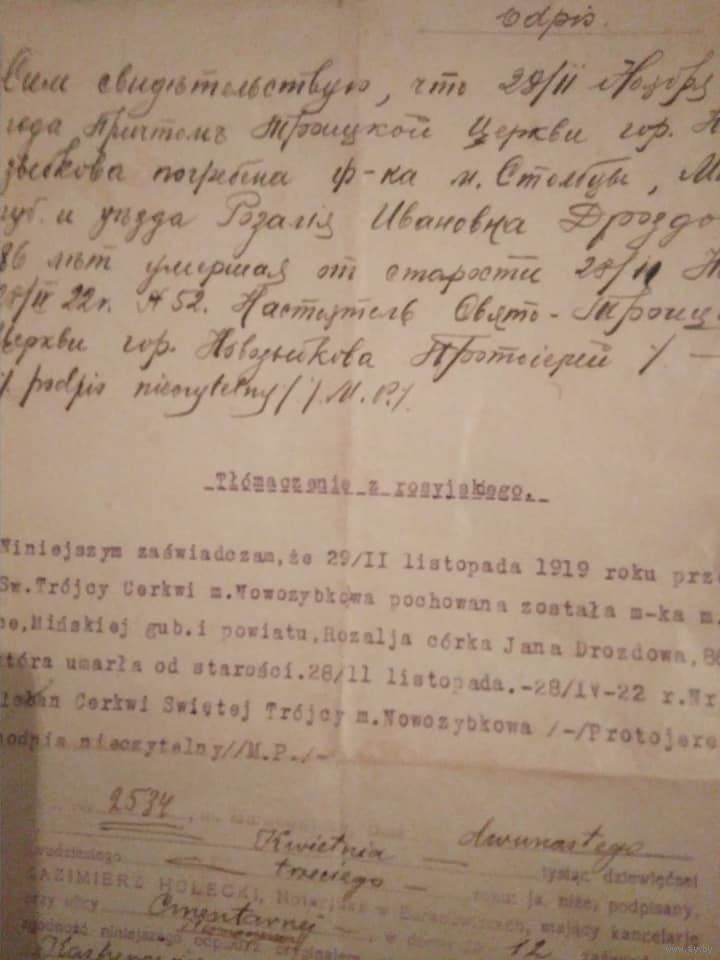 Odpis.
Сим свидѣтельствую, что 28/II Ноября
года Причтомъ Троицкой Церкви гор. Н
зыбкова погребена ф-ка м. Столбцы, М
губ. и уѣзда Розалія Ивановна Дроздо
86 лѣт умершая от старости 28/II Н
22 г. № 52. Настоятель Свято-Троиц
Церкви гор. Новозыбкова Протоіерей /-
/ podpis nieczytelny / / M.P./.
Tłómaczenie z rosyjskiego.
Niniejszym zaświadczam, że 29/II listopada 1919 roku prz
Sw.Trójcy Cerkwi m.Nowozybkowa pochowana została m-ka m.
ce,Mińskiej gub.i powiatu,Rozalja córka Jana Drozdowa,86
która umarła od starości.28/II listopada.-28/IV-22 r.Nr
Cerkwi Swiętej Trójcy m.Nowozybkowa /-/Protojere
podpis nieczytelny//M.P./-
2534
Kwietnia — dwunastego
trzeciego — tysiąc dziewięćset
roku: ja, niżej podpisany,
KAZIMIERZ HOLECKI, Notarjusz w Baranowiczach, mający kancelarję
przy ulicy Cmentarnej 12
zgodność niniejszego odpisu z oryginałem